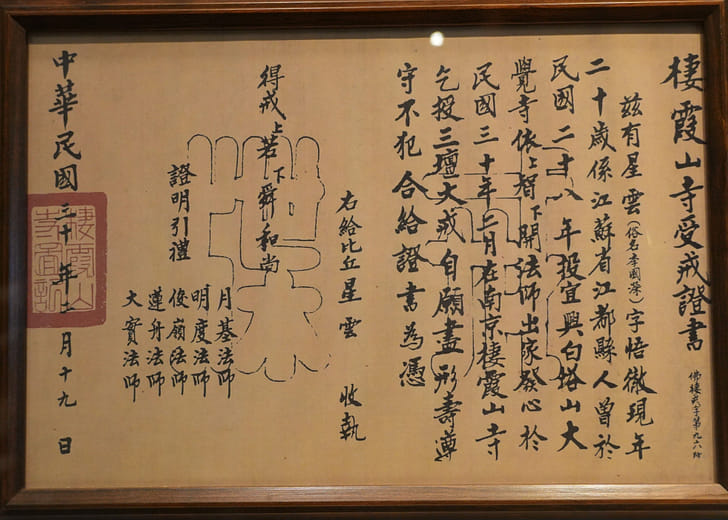 棲霞山寺受戒證書
茲有星雲(俗名李國榮)字悟徹現年
二十歲係江蘇省江都縣人曾於
民國二十八年投宜興白塔山大
覺寺依上智下開法師出家發心於
民國三十年二月在南京棲霞山寺
乞授三壇大戒自願盡形壽遵
守不犯合給證書為憑
右給比丘星雲 收執
得戒上若下舜和尚
證明引禮
月基法師
明度法師
俊嶺法師
蓮舟法師
大實法師
中華民國三十年二月十九日